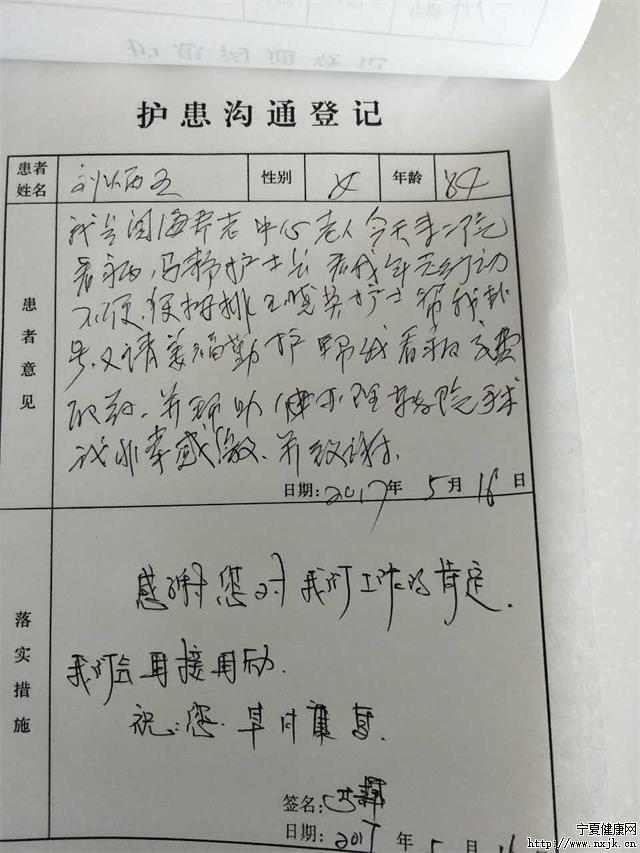 护患沟通登记
患者姓名 性别 女 年龄 84
患者意见
我是阅海养老中心老人今天来二院
看病,马静护士长看我年老行动
不便,便安排王晓英护士帮我挂
号,又请姜福勤护帮我看病交费
取药、并帮助办理 院手续
我非常感激、并致谢.
日期:2017年5月16日
落实措施
感谢您对我们工作的肯定.
我们会再接再励.
祝:您.早日康复.
签名:
日期:2017年5月16日
宁夏健康网
http://www.nxjk.cn